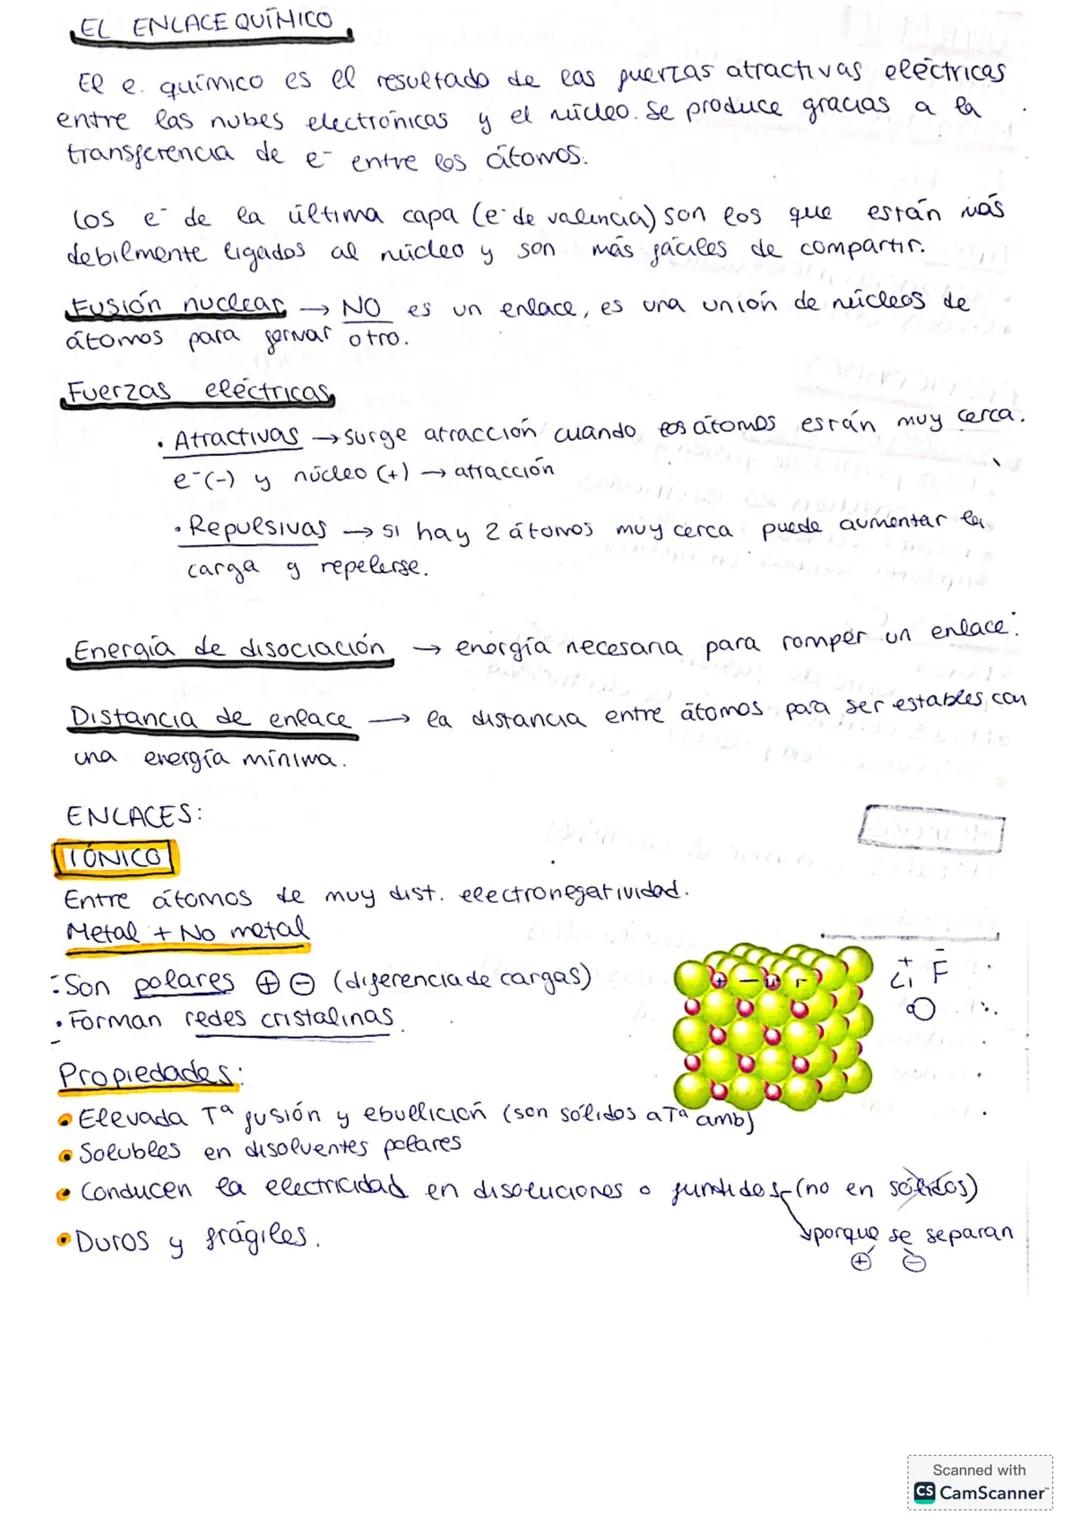 EL ENLACE QUÍMICO
El e. químico es el resultado de las fuerzas atractivas eléctricas
entre las nubes electrónicas y el núcleo. Se produce gracias a la
transferencia de e⁻ entre los átomos.
Los e⁻ de la última capa (e⁻ de valencia) son los que están más
debilmente ligados al núcleo y son más fáciles de compartir.
Fusión nuclear → NO es un enlace, es una unión de núcleos de
átomos para formar otro.
Fuerzas eléctricas
· Atractivas → surge atracción cuando los átomos están muy cerca.
e⁻(-) y núcleo (+) → atracción
· Repulsivas → si hay 2 átomos muy cerca puede aumentar la
carga y repelerse.
Energía de disociación → energía necesaria para romper un enlace.
Distancia de enlace → la distancia entre átomos para ser estables con
una energía mínima.
ENLACES:
IÓNICO
Entre átomos de muy dist. electronegatividad.
Metal + No metal
· Son polares ⊕ ⊖ (diferencia de cargas)
· Forman redes cristalinas
+ -
Li F
Propiedades:
• Elevada Tª fusión y ebullición (son sólidos a Tª amb)
• Solubles en disolventes polares
• Conducen la electricidad en disoluciones o fundidos (no en sólidos)
porque se separan
⊕ ⊖
• Duros y frágiles.
Scanned with
CS CamScanner™